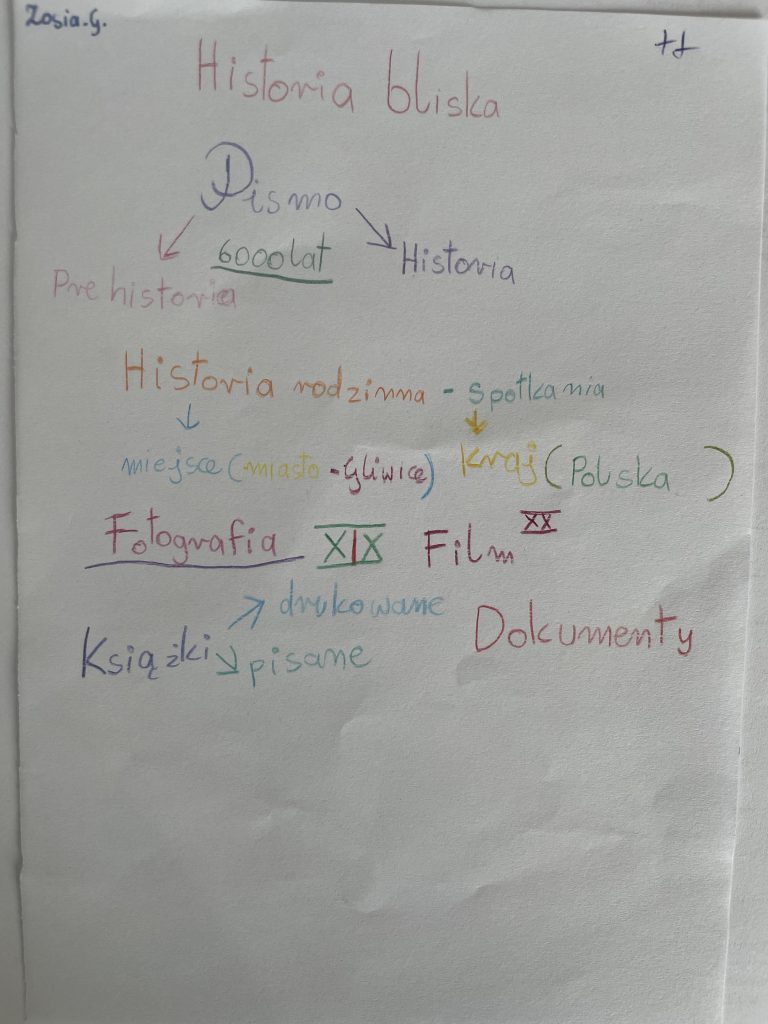 Zosia.G.
++
Historia bliska
Pismo
6000 lat
Prehistoria
Historia
Historia rodzinna - spotkania
miejsce (miasto - Gliwice) kraj (Polska)
Fotografia XIX Film XX
drukowane
Książki
pisane
Dokumenty